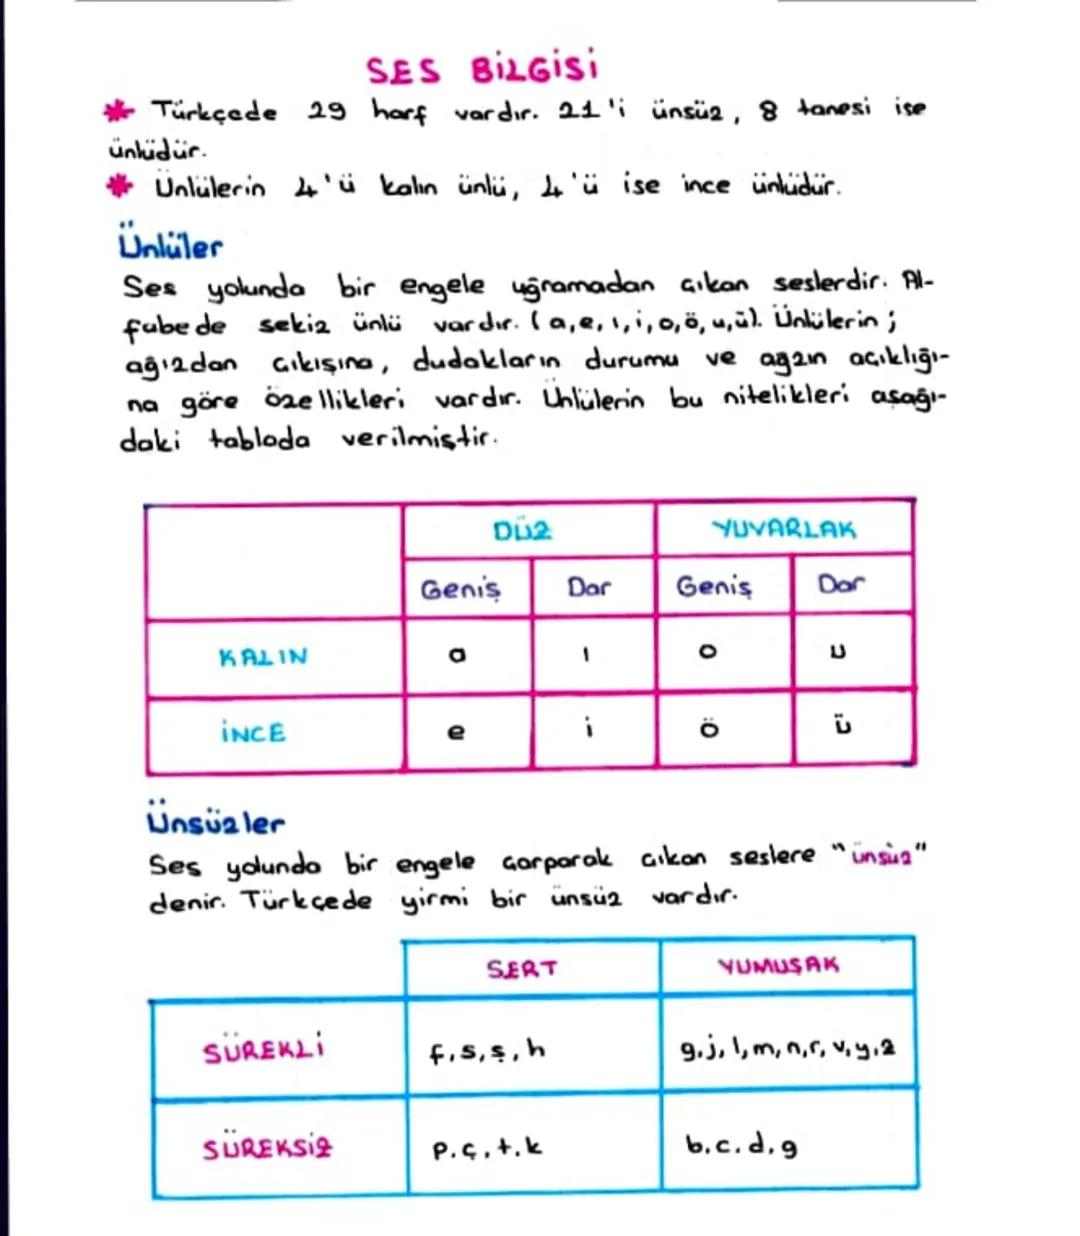 SES BİLGİSİ
* Türkçede 29 harf vardır. 21'i ünsüz, 8 tanesi ise
ünlüdür.
* Ünlülerin 4'ü kalın ünlü, 4'ü ise ince ünlüdür.
Ünlüler
Ses yolunda bir engele uğramadan çıkan seslerdir. Al-
fabede sekiz ünlü vardır. (a, e, ı, i, o, ö, u, ü). Ünlülerin;
ağızdan çıkışına, dudakların durumu ve agzın açıklığı-
na göre özellikleri vardır. Ünlülerin bu nitelikleri aşağı-
daki tabloda verilmiştir.
DÜZ YUVARLAK
Geniş Dar Geniş Dar
KALIN a ı o u
İNCE e i ö ü
Ünsüzler
Ses yolunda bir engele çarparak çıkan seslere "ünsüz"
denir. Türkçede yirmi bir ünsüz vardır.
SERT YUMUŞAK
SÜREKLİ f, s, ş, h g, j, l, m, n, r, v, y, z
SÜREKSİZ p, ç, t, k b, c, d, g